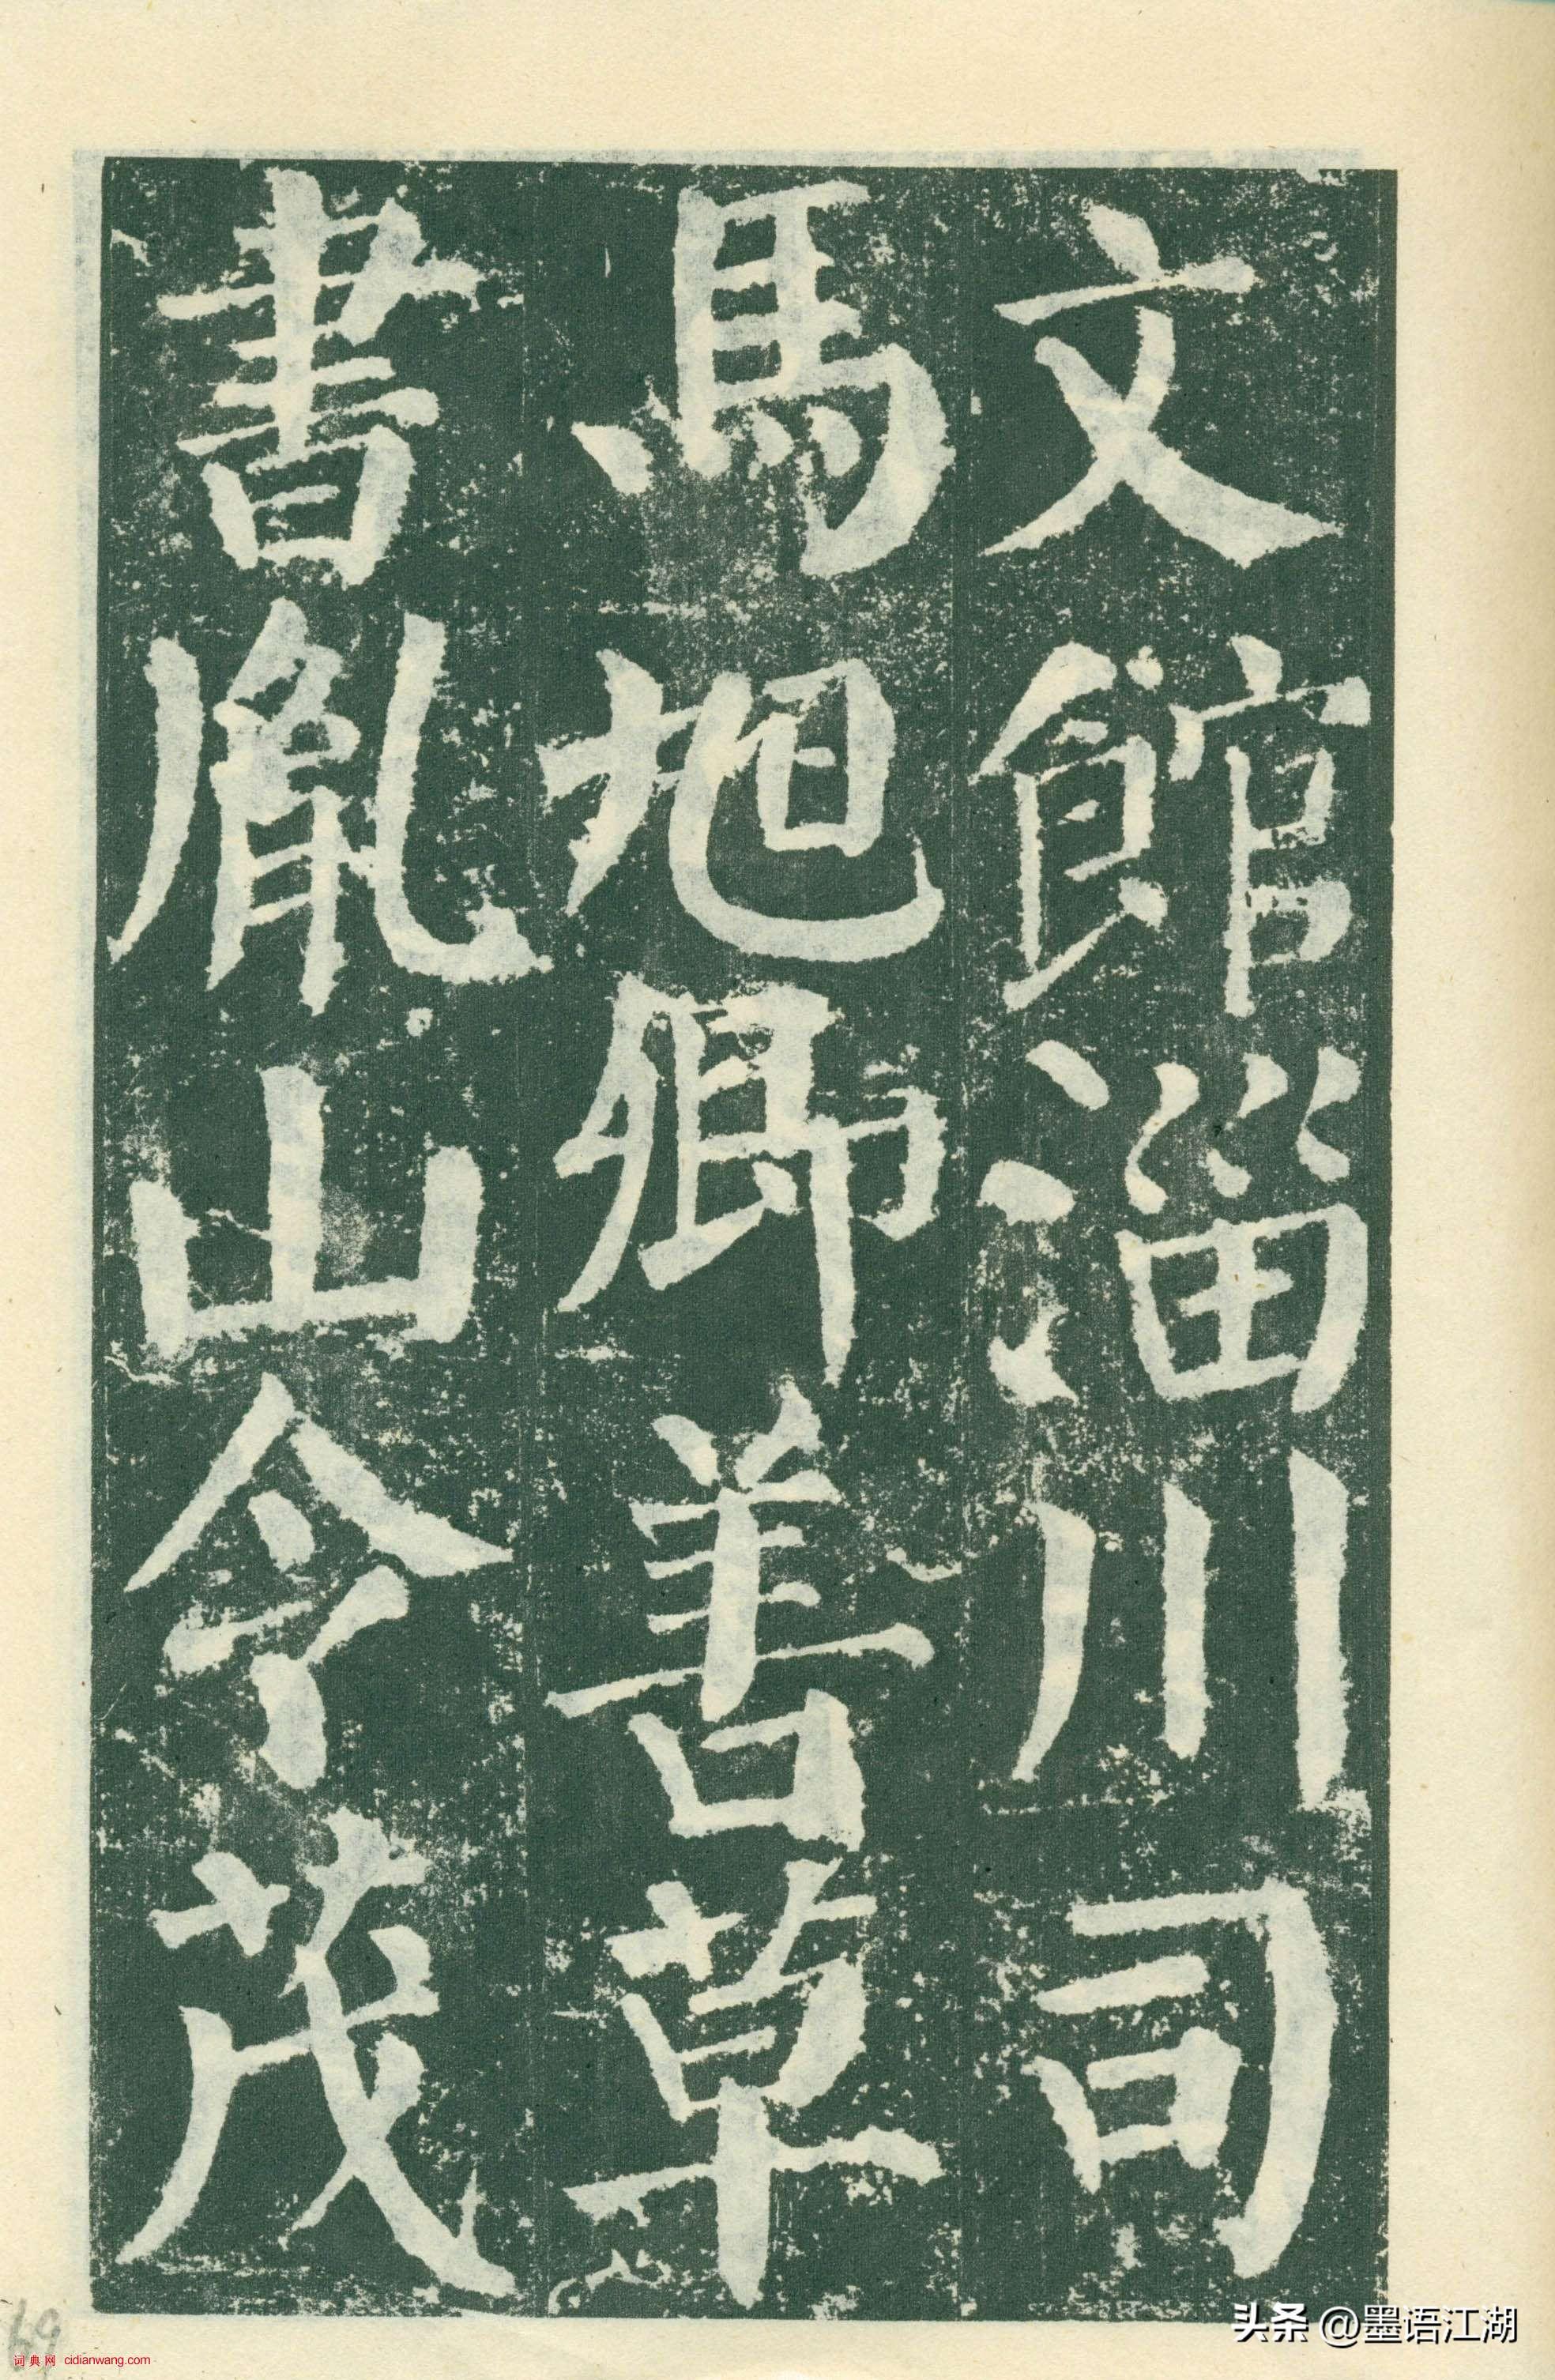 文館淄川司
馬旭卿善草
書胤山令茂
头条 @墨语江湖
69
词典网 cidianwang.com